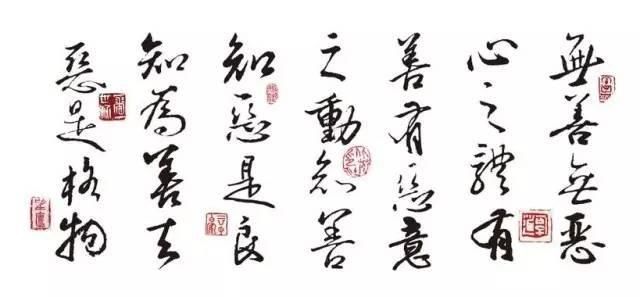 無善無惡
心之體有
善有惡意
之動知善
知惡是良
知為善去
惡是格物